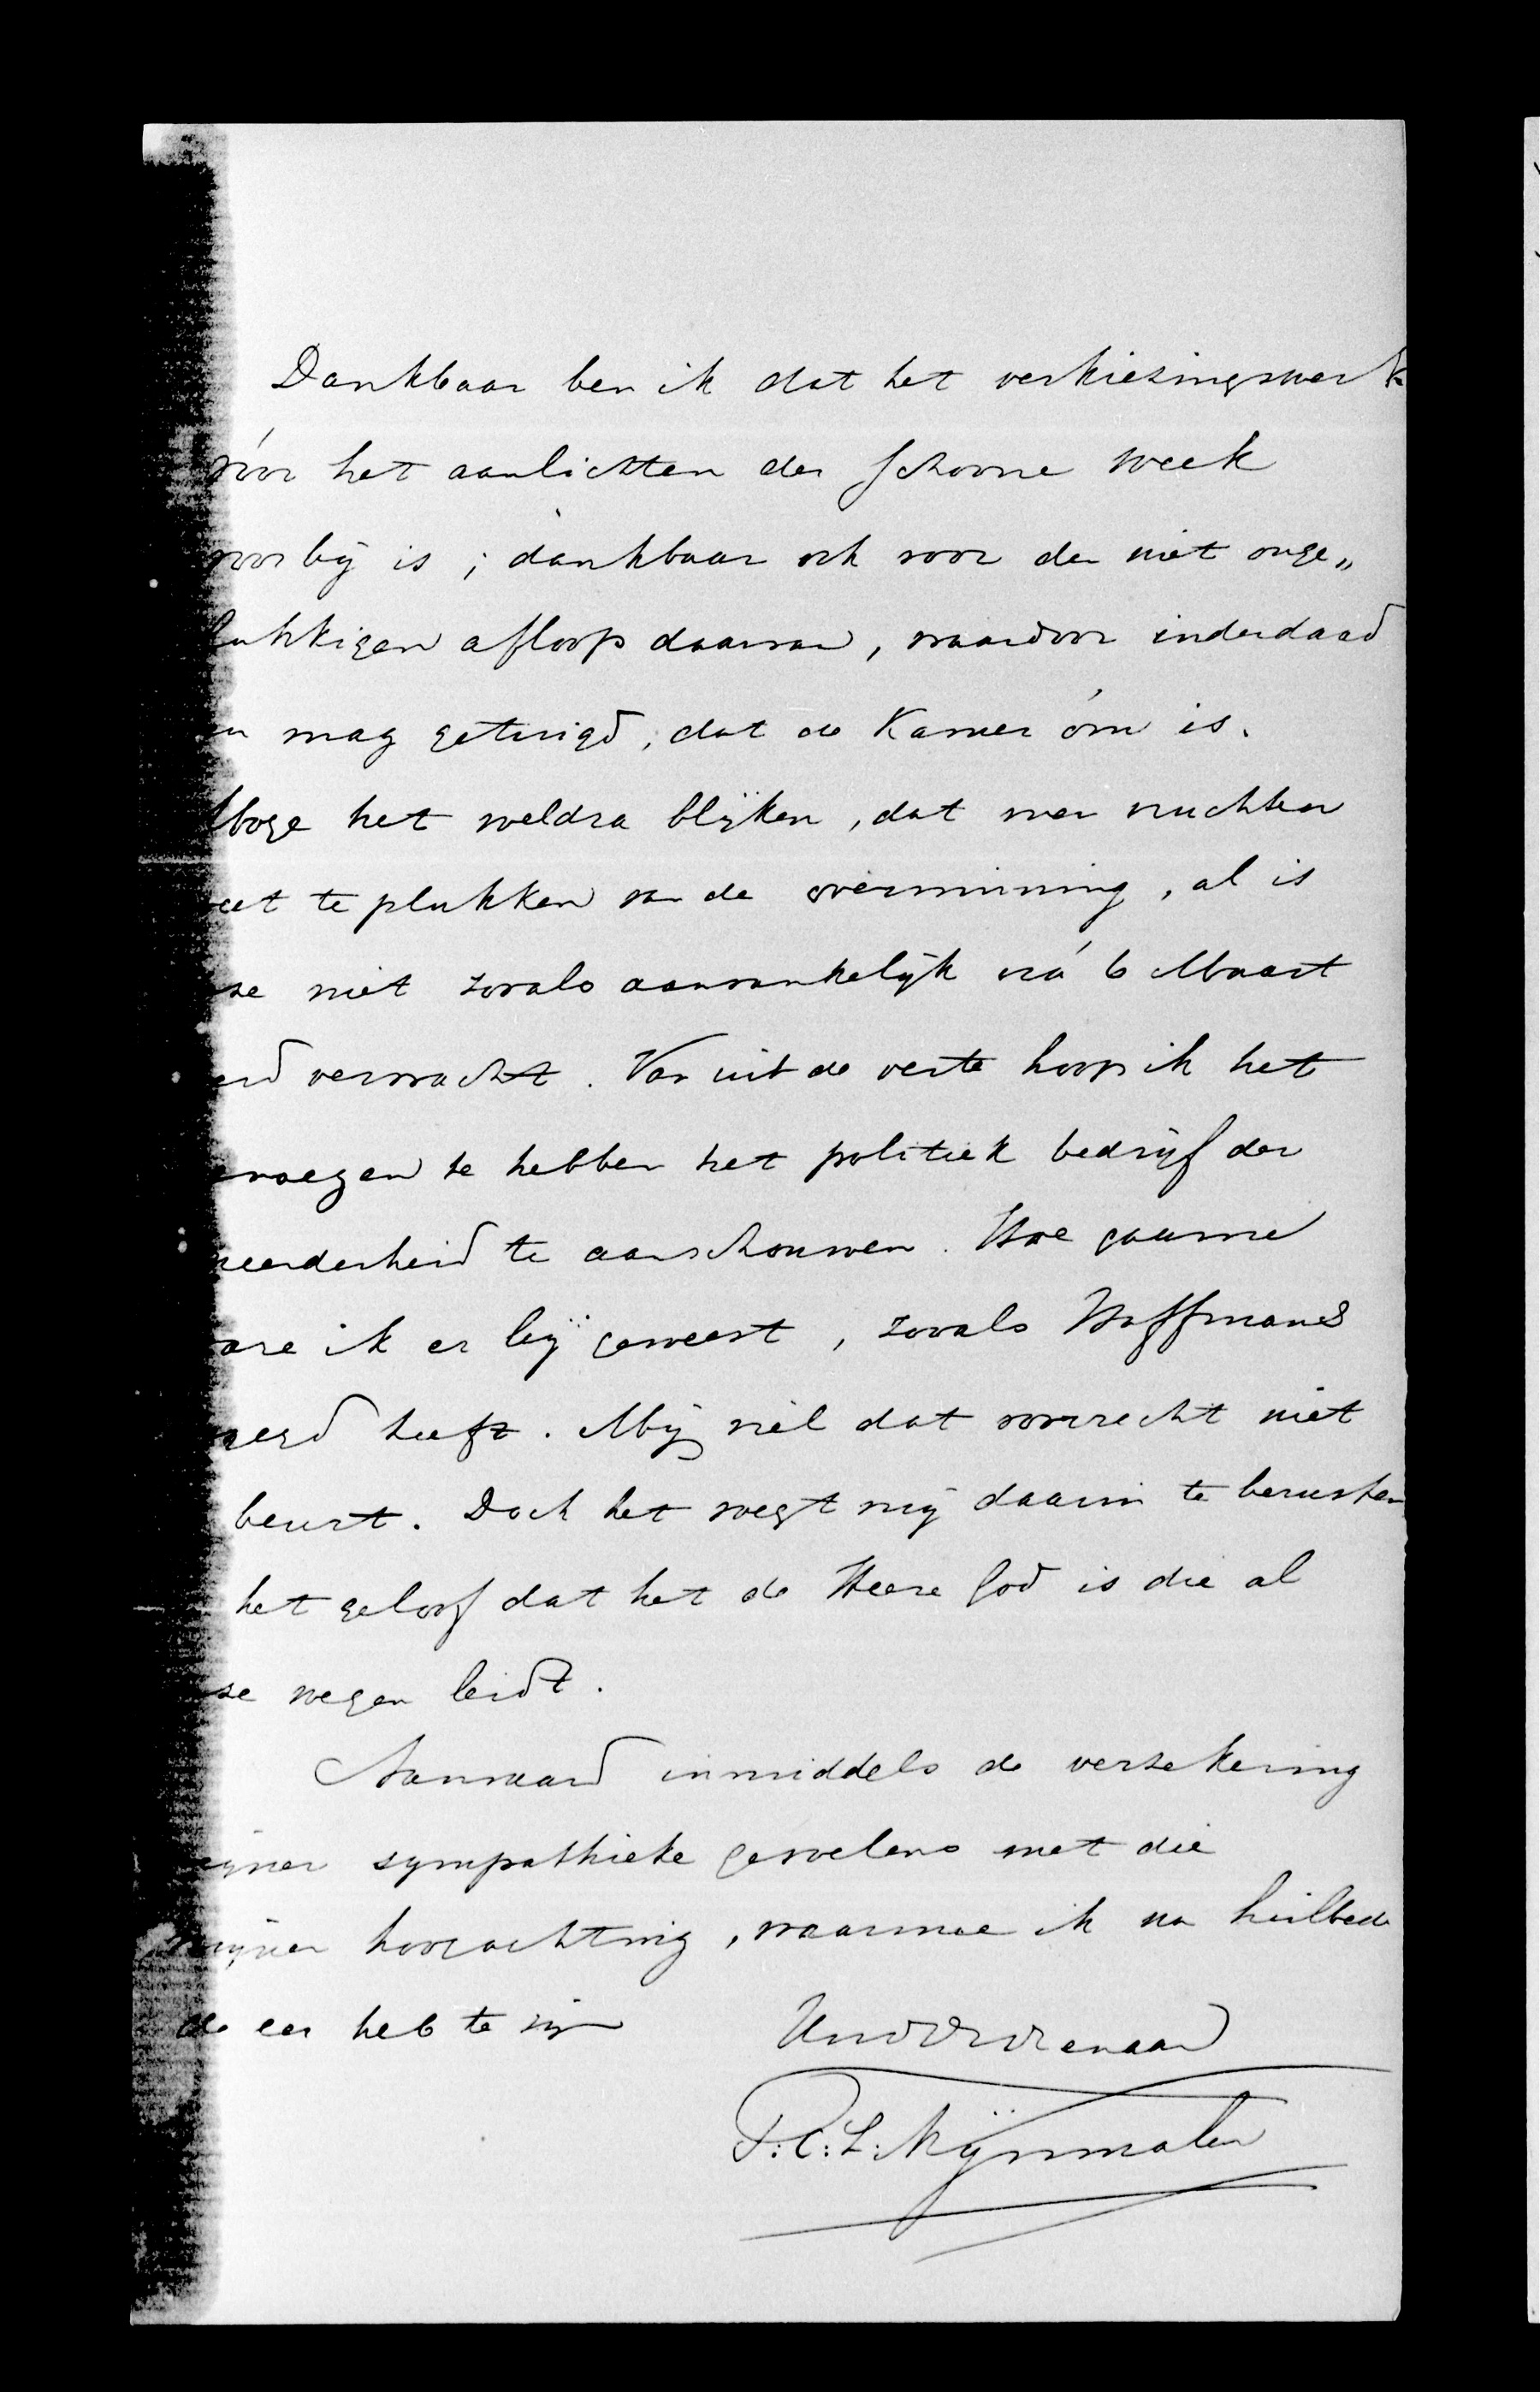 Dankbaar ben ik dat het verkiezingswerk
vóór het aanlichten der schoone week
voorbij is; dankbaar ook voor den niet onge„
lukkigen afloop daarvan, waardoor inderdaad
en mag getuigd, dat de Kamer óm is.
Moge het weldra blijken, dat men vruchten
eet te plukken van de overwinning, al is
ze niet zooals aanvankelijk ná 6 Maart
erd verwacht. Van uit de verte hoop ik het
enoegen te hebben het politiek bedrijf der
meerderheid te aanschouwen. Hoe gaarne
are ik er bij geweest, zooals Hoffmans
eerd heeft. Mij viel dat voorrecht niet
beurt. Doch het voegt mij daarin te berusten
het geloof dat het de Heere God is die al
ze wegen leidt.
Aanvaard inmiddels de verzekering
mijner sympathieke gevoelens met die
mijner hoogachting, waarmee ik na heilbede
de eer heb te zijn
Uw dw dienaar
F. C. L. Nijnmolen